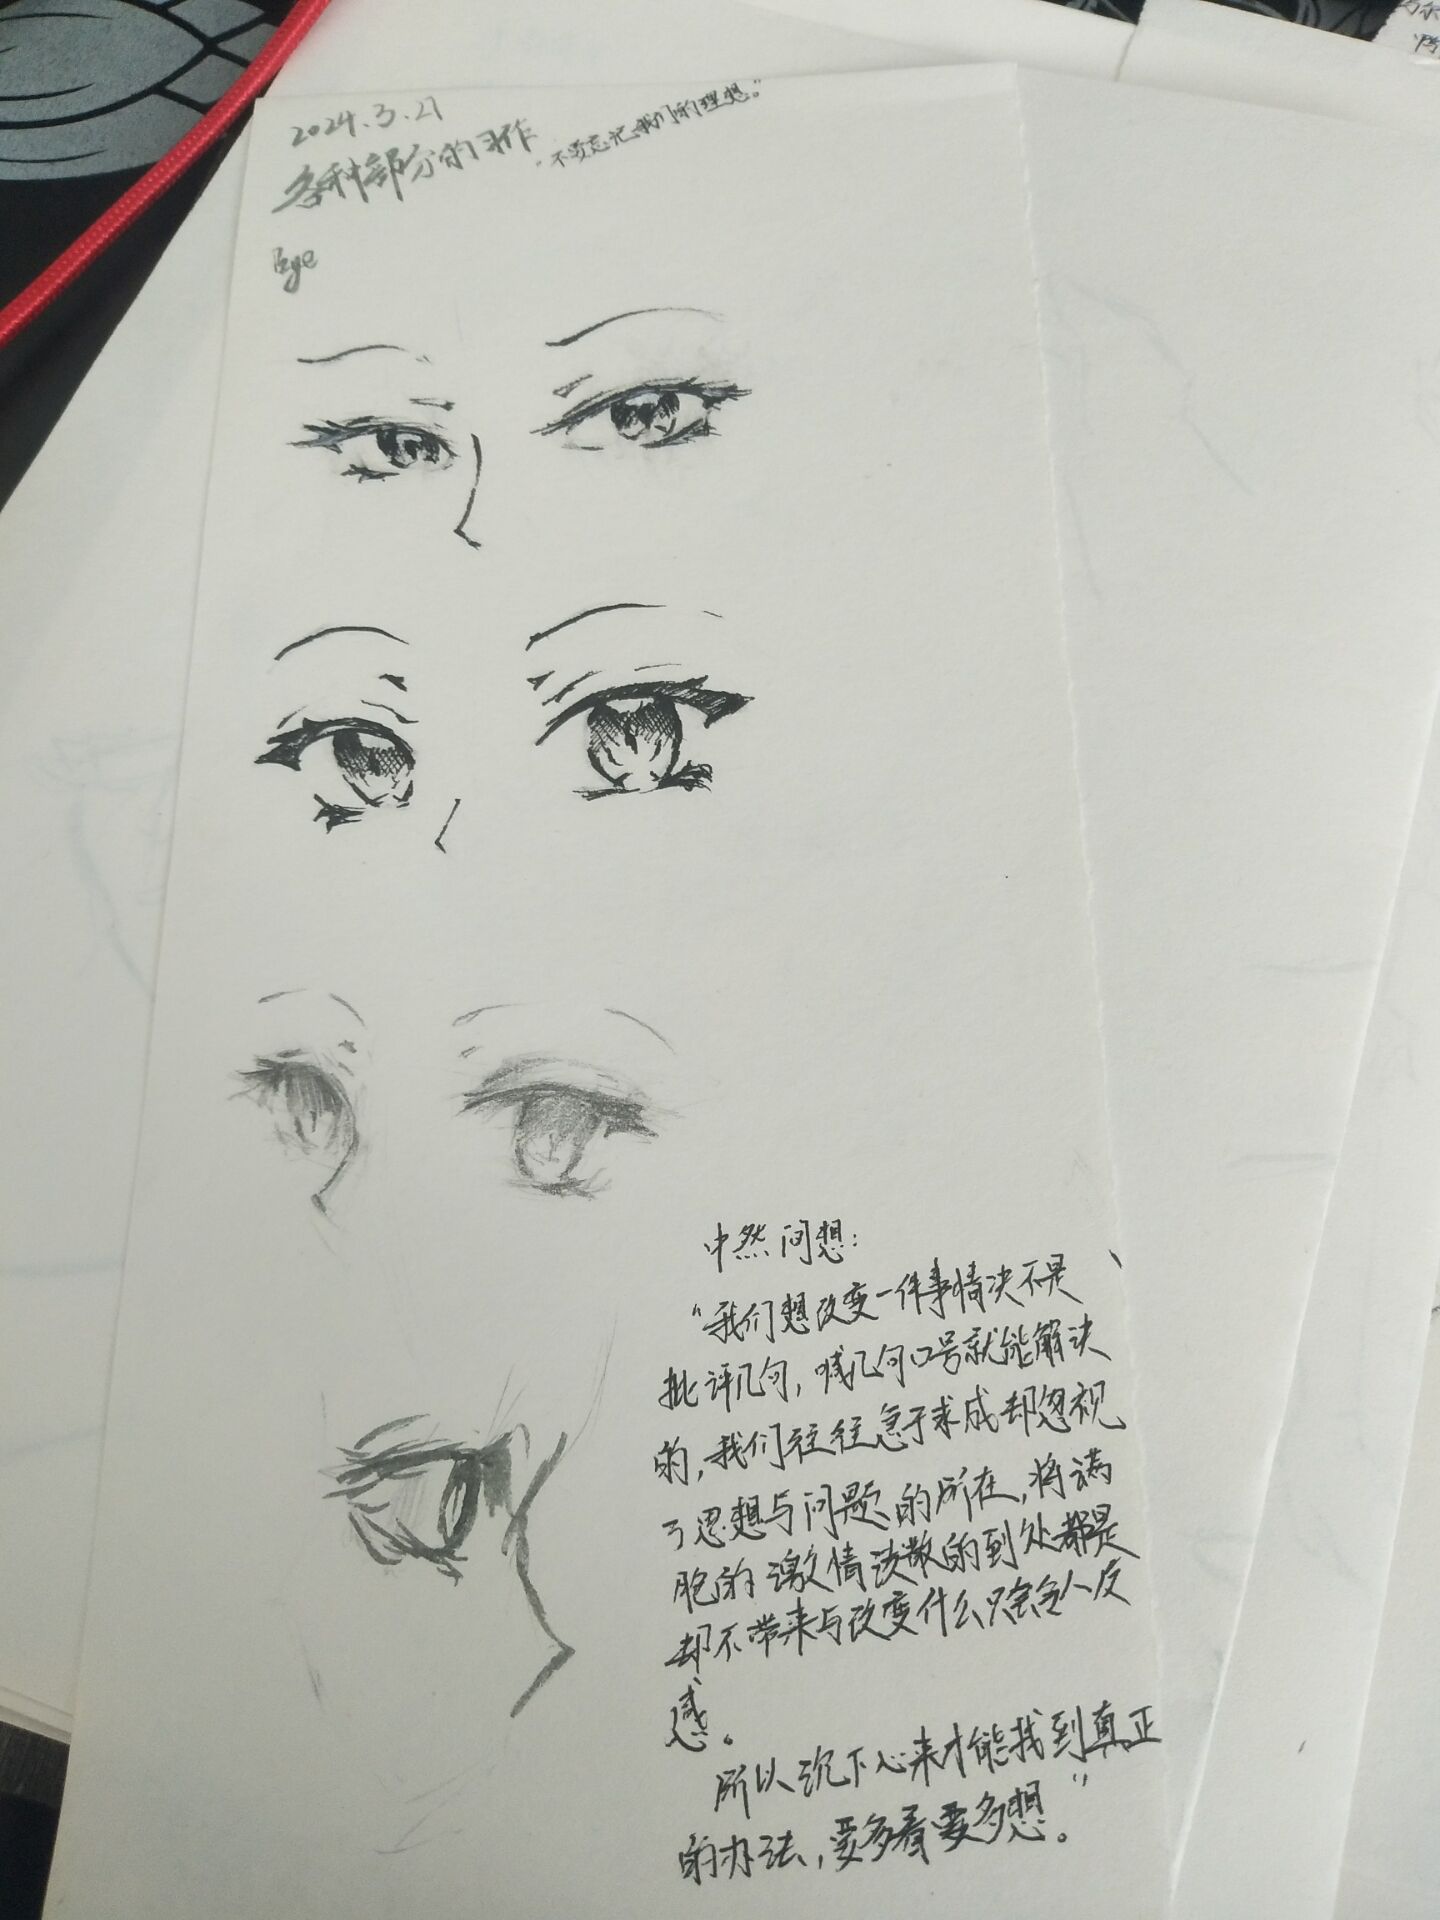 2024.3.27
各种部分的习作
"不要忘记我们的理想。"
Eye
中然间想：
"我们想改变一件事情决不是
批评几句，喊几句口号就能解决
的，我们往往急于求成却忽视
了思想与问题的所在，将满
胞的激情泼散的到处都是
却不带来与改变什么只会令人反
感。
所以沉下心来才能找到真正
的办法，要多看要多想。"